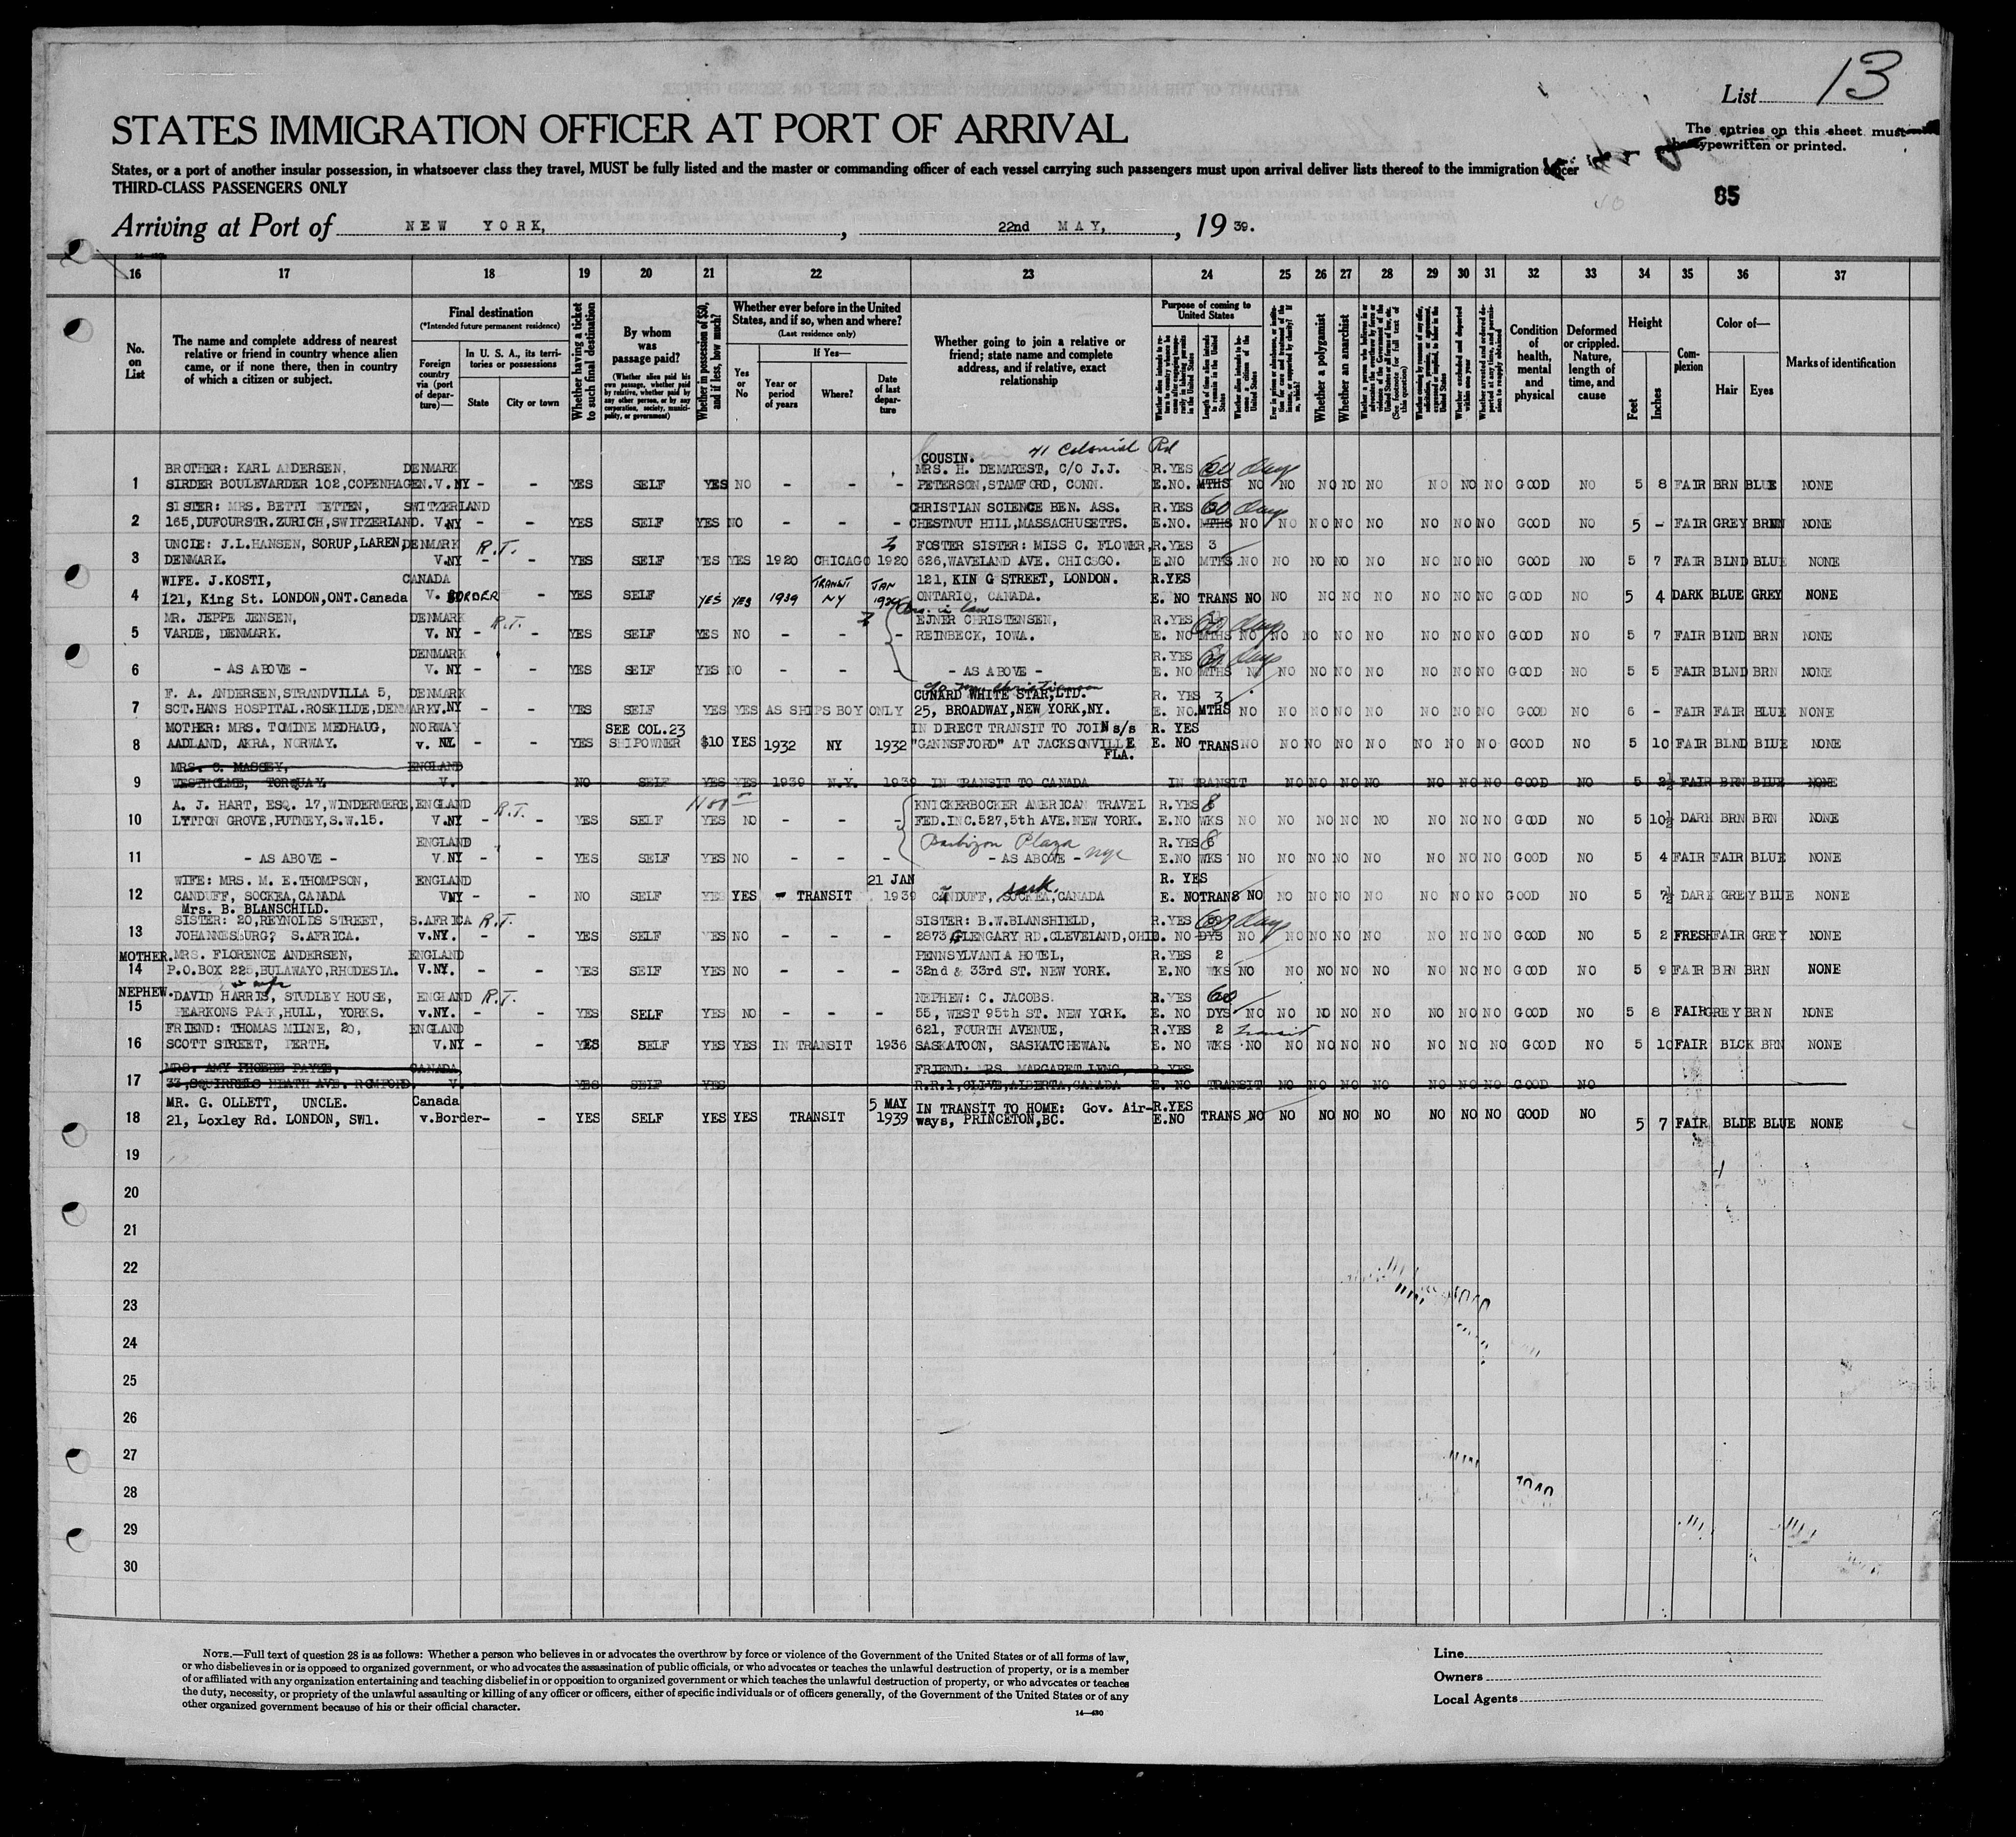 List 13
STATES IMMIGRATION OFFICER AT PORT OF ARRIVAL
The entries on this sheet must
typewritten or printed.
States, or a port of another insular possession, in whatsoever class they travel, MUST be fully listed and the master or commanding officer of each vessel carrying such passengers must upon arrival deliver lists thereof to the immigration officer
THIRD-CLASS PASSENGERS ONLY
85
Arriving at Port of NEW YORK, , 22nd MAY, , 19 39.
16 17 18 19 20 21 22 23 24 25 26 27 28 29 30 31 32 33 34 35 36 37
No. on List
The name and complete address of nearest relative or friend in country whence alien came, or if none there, then in country of which a citizen or subject.
Final destination
(*Intended future permanent residence)
Foreign country via (port of departure)—
In U. S. A., its territories or possessions
State
City or town
Whether having a ticket to such final destination
By whom was passage paid?
(Whether alien paid his own passage, whether paid by relative, whether paid by any other person, or by any corporation, society, municipality, or government)
Whether in possession of $50, and if less, how much?
Whether ever before in the United States, and if so, when and where?
(Last residence only)
Yes or No
If Yes—
Year or period of years
Where?
Date of last departure
Whether going to join a relative or friend; state name and complete address, and if relative, exact relationship
Purpose of coming to United States
Whether a polygamist
Whether an anarchist
Condition of health, mental and physical
Deformed or crippled. Nature, length of time, and cause
Height
Feet
Inches
Complexion
Color of—
Hair
Eyes
Marks of identification
COUSIN. 41 Colonial Rd
BROTHER: KARL ANDERSEN, DENMARK MRS. H. DEMAREST, C/O J.J. R.YES 60 days
1 SIRDER BOULEVARDER 102,COPENHAGEN. V. NY - - YES SELF YES NO - - - PETERSON,STAMFORD, CONN. E.NO. MTHS NO NO NO NO NO NO NO NO GOOD NO 5 8 FAIR BRN BLUE NONE
SISTER: MRS. BETTI WETTEN, SWITZERLAND CHRISTIAN SCIENCE BEN. ASS. R.YES 60 days
2 165,DUFOURSTR.ZURICH,SWITZERLAND. V.NY - - YES SELF YES NO - - - CHESTNUT HILL,MASSACHUSETTS. E.NO. MTHS NO NO NO NO NO NO NO NO GOOD NO 5 - FAIR GREY BRN NONE
UNCLE: J.L.HANSEN, SORUP,LAREN, DENMARK R.T. FOSTER SISTER: MISS C. FLOWER, R.YES 3
3 DENMARK. V.NY - - YES SELF YES YES 1920 CHICAGO 1920 626,WAVELAND AVE. CHICSGO. E.NO MTHS NO NO NO NO NO NO NO NO GOOD NO 5 7 FAIR BLND BLUE NONE
WIFE. J.KOSTI, CANADA TRANSIT JAN 121, KING STREET, LONDON. R.YES
4 121, King St. LONDON,ONT.Canada V. BORDER - YES SELF YES YES 1939 NY 1939 ONTARIO, CANADA. E. NO TRANS NO NO NO NO NO NO NO NO GOOD NO 5 4 DARK BLUE GREY NONE
Bro. in law
MR. JEPPE JENSEN, DENMARK R.T. EJNER CHRISTENSEN, R.YES 60 days
5 VARDE, DENMARK. V. NY - - YES SELF YES NO - - - REINBECK, IOWA. E. NO MTHS NO NO NO NO NO NO NO NO GOOD NO 5 7 FAIR BLND BRN NONE
DENMARK R.YES 60 days
6 - AS ABOVE - V. NY - - YES SELF YES NO - - - - AS ABOVE - E. NO MTHS NO NO NO NO NO NO NO NO GOOD NO 5 5 FAIR BLND BRN NONE
F. A. ANDERSEN,STRANDVILLA 5, DENMARK CUNARD WHITE STAR,LTD. R. YES 3
7 SCT.HANS HOSPITAL.ROSKILDE,DENMARK V.NY - - YES SELF YES YES AS SHIPS BOY ONLY 25, BROADWAY,NEW YORK,NY. E. NO. MTHS NO NO NO NO NO NO NO NO GOOD NO 6 - FAIR FAIR BLUE NONE
MOTHER: MRS. TOMINE MEDHAUG, NORWAY SEE COL.23 IN DIRECT TRANSIT TO JOIN s/s R. YES
8 AADLAND, AKRA, NORWAY. v. NY. - - YES SHIPOWNER $10 YES 1932 NY 1932 "GANNSFJORD" AT JACKSONVILLE E. NO TRANS NO NO NO NO NO NO NO NO GOOD NO 5 10 FAIR BLND BLUE NONE
FLA.
MRS. C. MASSEY, ENGLAND
9 WESTHOLME, TORQUAY. V. NO SELF YES YES 1939 N.Y. 1939 IN TRANSIT TO CANADA IN TRANSIT NO NO NO NO NO NO NO GOOD NO 5 2½ FAIR BRN BLUE NONE
A. J. HART, ESQ. 17,WINDERMERE, ENGLAND R.T. KNICKERBOCKER AMERICAN TRAVEL R.YES 8
10 LYTTON GROVE,PUTNEY,S.W.15. V.NY - - YES SELF YES NO - - - FED.INC.527,5th AVE.NEW YORK. E.NO WKS NO NO NO NO NO NO NO NO GOOD NO 5 10½ DARK BRN BRN NONE
ENGLAND Barbizon Plaza R.YES 8
11 - AS ABOVE - V.NY - - YES SELF YES NO - - - - AS ABOVE - nyc E.NO WKS NO NO NO NO NO NO NO NO GOOD NO 5 4 FAIR FAIR BLUE NONE
WIFE: MRS. M. E.THOMPSON, ENGLAND 21 JAN R. YES
12 CANDUFF, SOCKEA,CANADA V NY - - NO SELF YES YES - TRANSIT 1939 CANDUFF, SOCKEA, sask. CANADA E. NO TRANS NO NO NO NO NO NO NO NO GOOD NO 5 7½ DARK GREY BLUE NONE
Mrs. B. BLANSCHILD.
SISTER: 20,REYNOLDS STREET, S.AFRICA R.T. SISTER: B.W.BLANSHIELD, R.YES 60 days
13 JOHANNESBURG, S.AFRICA. v.NY. - - YES SELF YES NO - - - 2873,GLENGARY RD.CLEVELAND,OHIO. NO DYS NO NO NO NO NO NO NO NO GOOD NO 5 2 FRESH FAIR GREY NONE
MOTHER. MRS. FLORENCE ANDERSEN, ENGLAND PENNSYLVANIA HOTEL, R.YES 2
14 P.O.BOX 225,BULAWAYO,RHODESIA. V.NY. - - YES SELF YES NO - - - 32nd & 33rd ST. NEW YORK. E.NO WKS NO NO NO NO NO NO NO NO GOOD NO 5 9 FAIR BRN BRN NONE
NEPHEW. DAVID HARRIS, STUDLEY HOUSE, ENGLAND R.T. NEPHEW: C. JACOBS. R.YES 60
15 PEARKONS PARK,HULL, YORKS. v.NY. - - YES SELF YES NO - - - 55, WEST 95th ST. NEW YORK. E. NO DYS NO NO NO NO NO NO NO NO GOOD NO 5 8 FAIR GREY BRN NONE
FRIEND: THOMAS MILNE, 20, ENGLAND 621, FOURTH AVENUE, R.YES 2 transit
16 SCOTT STREET, PERTH. V.NY - - YES SELF YES YES IN TRANSIT 1936 SASKATOON, SASKATCHEWAN. E. NO WKS NO NO NO NO NO NO NO NO GOOD NO 5 10 FAIR BLCK BRN NONE
MRS. AMY PHOEBE PAYZE, CANADA FRIEND: MRS. MARGARET LENG, R.YES
17 33,SQUIRRELS HEATH AVE. ROMFORD. V. YES SELF YES R.R.1,CLIVE,ALBERTA,CANADA E. NO TRANSIT NO NO NO NO NO NO NO GOOD NO
MR. G. OLLETT, UNCLE. Canada 5 MAY IN TRANSIT TO HOME: Gov. Air- R.YES
18 21, Loxley Rd. LONDON, SW1. v.Border- - YES SELF YES YES TRANSIT 1939 ways, PRINCETON,BC. E.NO TRANS NO NO NO NO NO NO NO NO GOOD NO 5 7 FAIR BLDE BLUE NONE
19
20
21
22
23
24
25
26
27
28
29
30
NOTE.—Full text of question 28 is as follows: Whether a person who believes in or advocates the overthrow by force or violence of the Government of the United States or of all forms of law,
or who disbelieves in or is opposed to organized government, or who advocates the assassination of public officials, or who advocates or teaches the unlawful destruction of property, or is a member
of or affiliated with any organization entertaining and teaching disbelief in or opposition to organized government or which teaches the unlawful destruction of property, or who advocates or teaches
the duty, necessity, or propriety of the unlawful assaulting or killing of any officer or officers, either of specific individuals or of officers generally, of the Government of the United States or of any
other organized government because of his or their official character.
14—430
Line
Owners
Local Agents